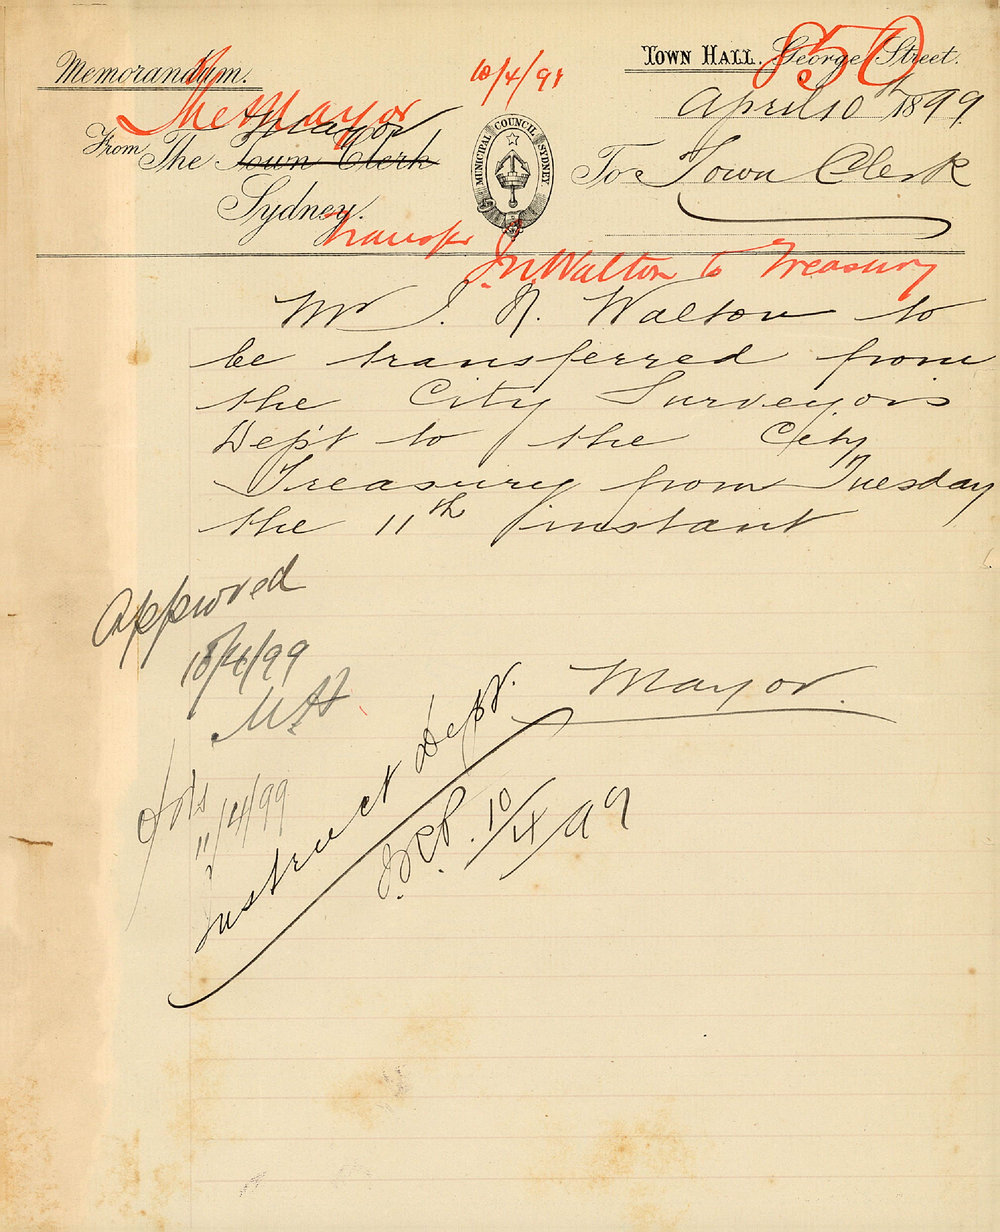 Memorandum.
TOWN HALL. George Street.
850
10/4/99
The Mayor
April 10th 1899
Mayor
From The Town Clerk
Sydney.
MUNICIPAL COUNCIL SYDNEY
To Town Clerk
Transfer
J.N. Walton to Treasury
Mr J. N. Walton to
be transferred from
the City Surveyors
Dep't to the City
Treasury from Tuesday
the 11th instant
Approved
10/4/99
Mayor.
Instruct Dept.
10/4/99
11/4/99